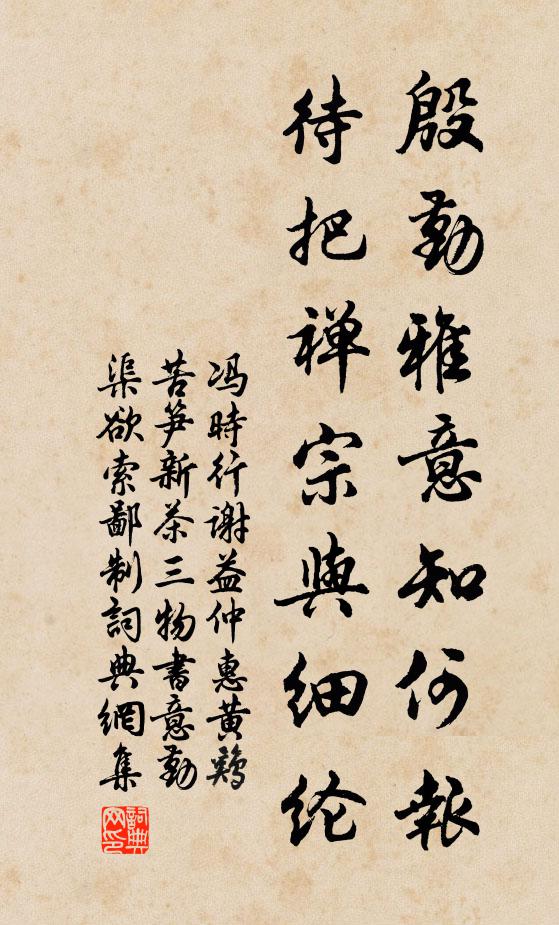 殷勤雅意知何報
待把禅宗與细纶
冯時行谢益仲惠黄鷄
苦笋新茶三物書意勤
渠欲索鄙制詞典網集
詞典网印